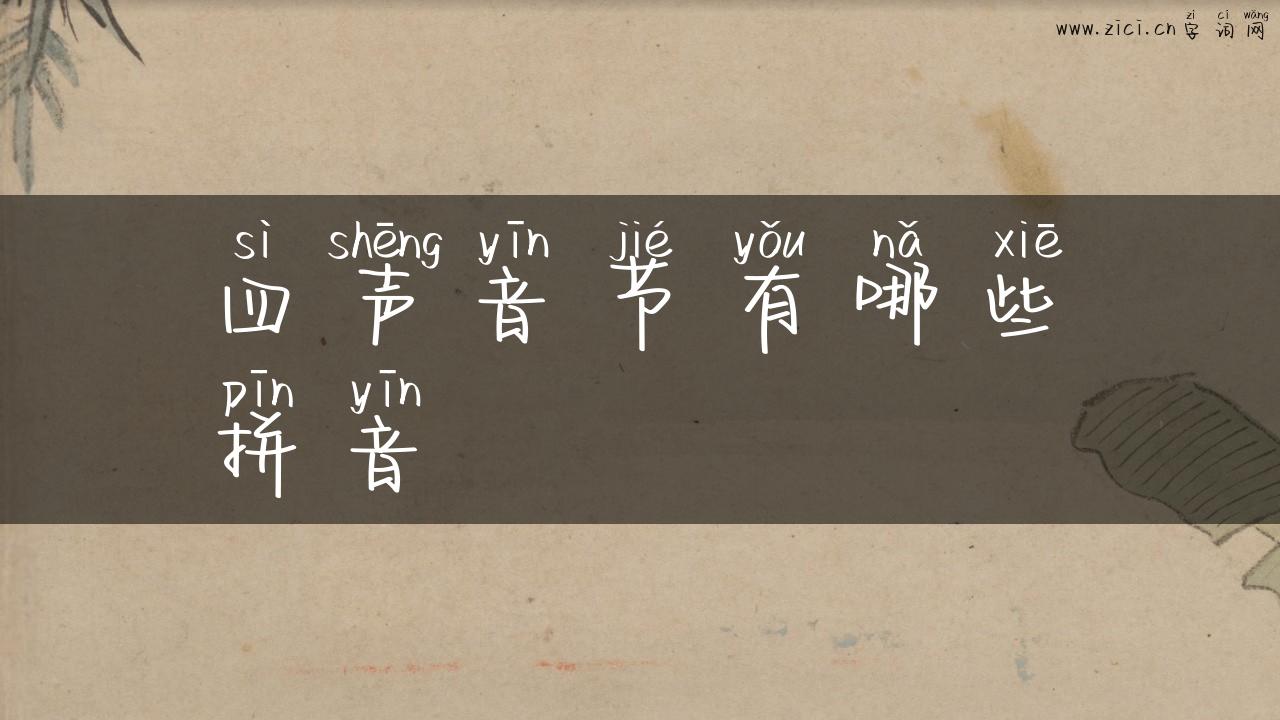 zì cí wǎng
www.zici.cn 字词网
sì shēng yīn jié yǒu nǎ xiē
四声音节有哪些
pīn yīn
拼音